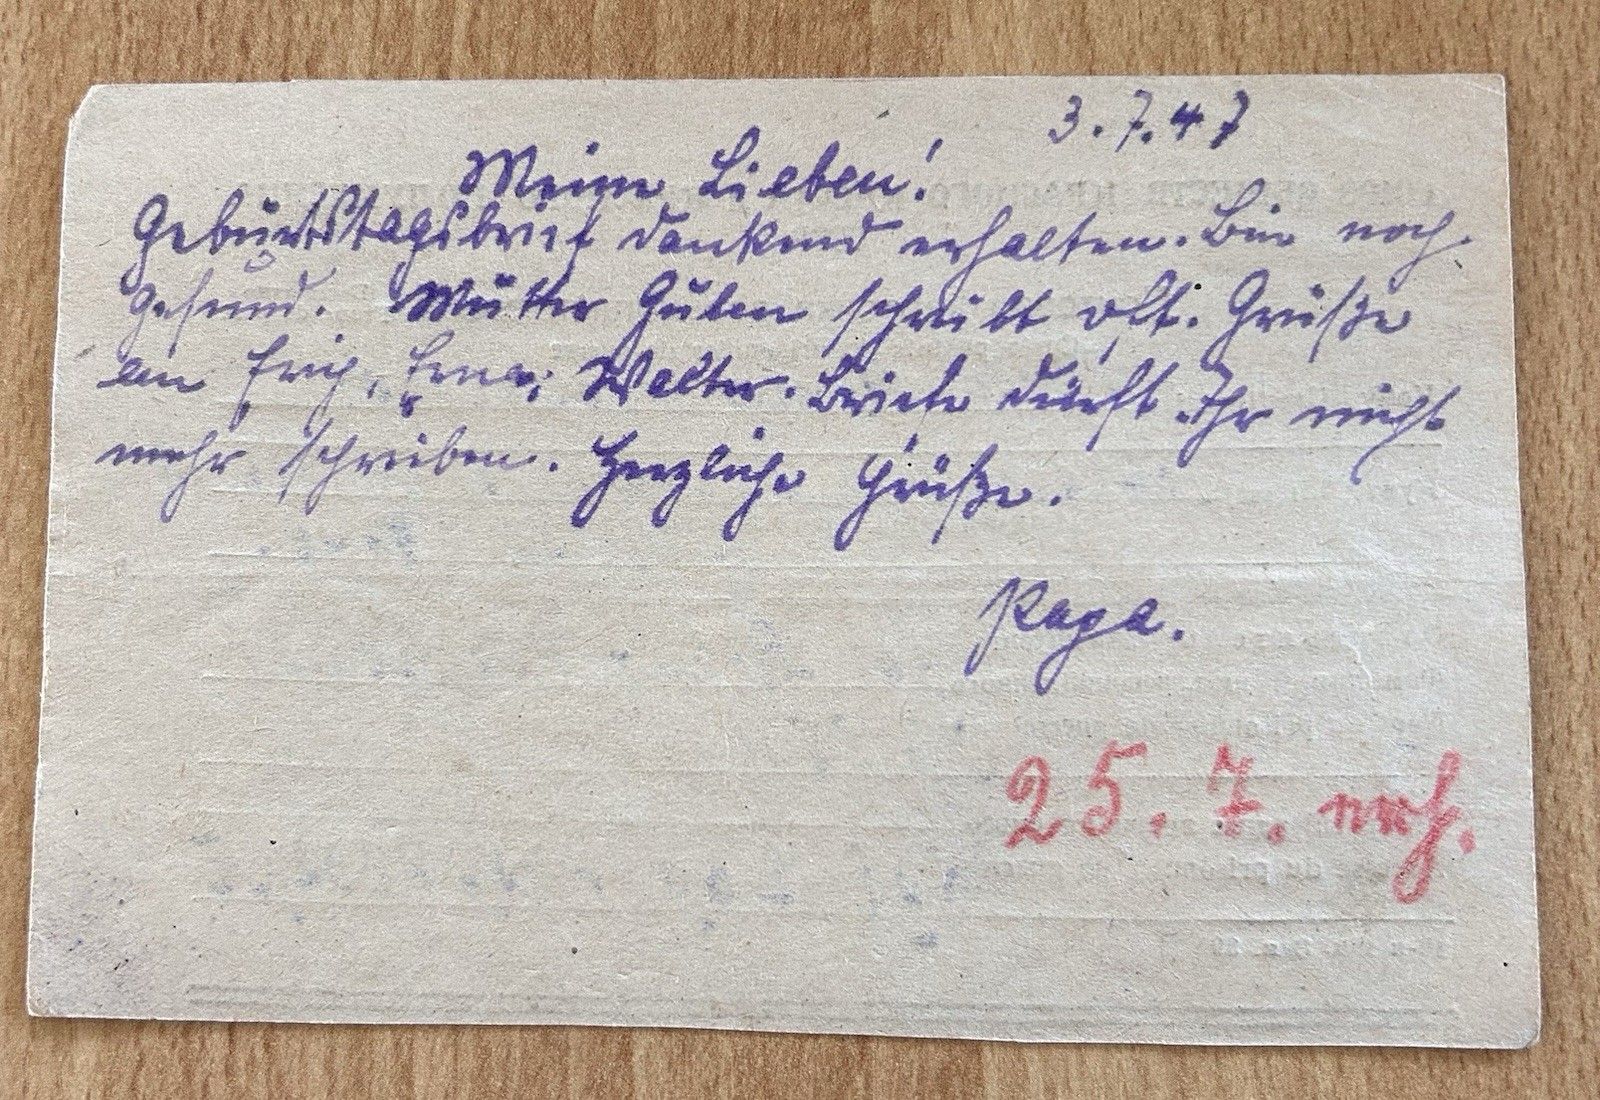 3.7.47
Meine Lieben!
Geburtstagsbrief dankend erhalten. Bin noch
gesund. Mutter Guben schreibt oft. Grüße
an Erich, Erna, Walter. Briefe dürft Ihr nicht
mehr schreiben. Herzliche Grüße.
Papa.
25.7. erh.